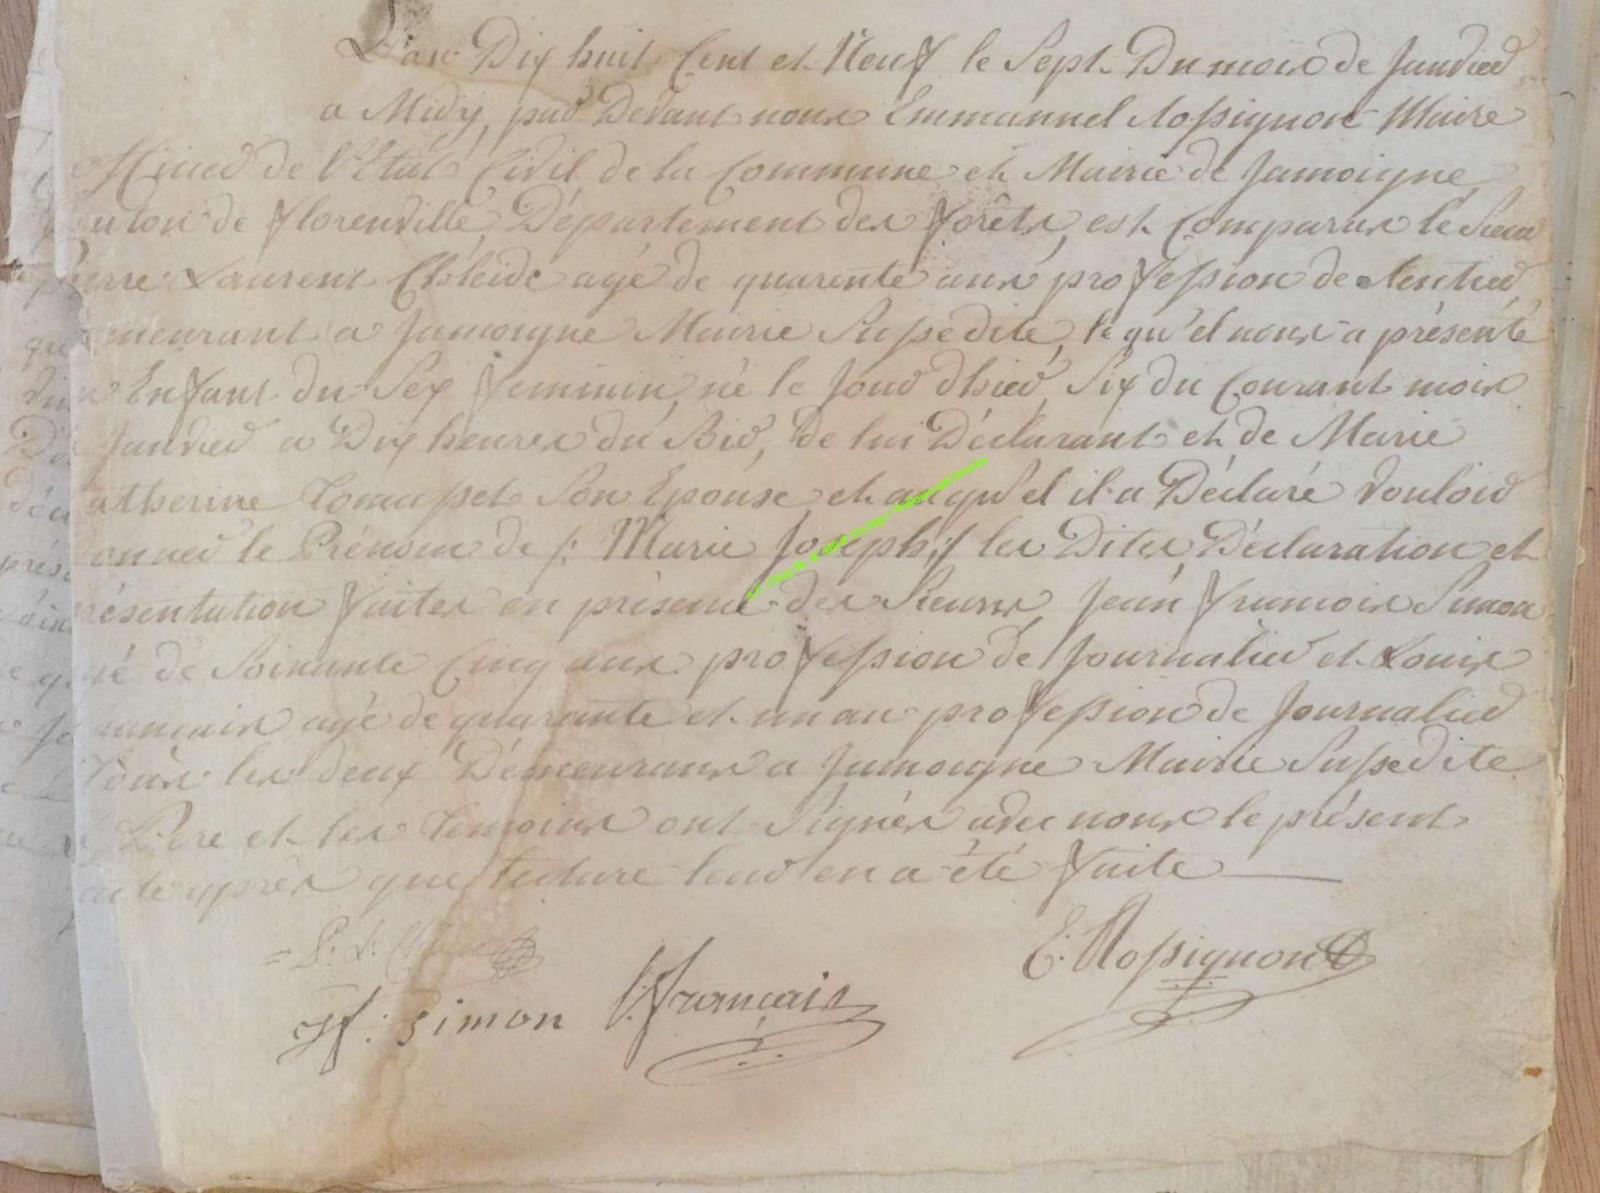 L'an Dix huit Cent et Neuf le Sept Du mois de Janvier
a Midy, par Devant nous Emmanuel Rossignon Maire
officier de l'Etat Civil de la Commune et Mairie de Jamoigne
anton de Florenville, Département des Forêts, est Comparus le Sieur
ierre Laurent age de quarente ans profession de Rentier
meurant a Jamoigne Mairie Susedite, le qu'el nous a présenté
un Enfant du Sex Feminin, né le Jour d'hier, Six du Courant mois
Janvier a Dix heures du Soir, de lui Déclarant et de Marie
atherine Son Epouse, et auqu'el il a Déclaré vouloir
onner le Prénom de /: Marie Joseph :/ les Dites Déclaration et
résentation Faites en présence des Sieurs Jean François Simon
gé de Soixante Cinq ans profession de Journalier et Louis
rançais agé de quarante et un an profession de Journalier
Tous les deux Démeurans a Jamoigne Mairie Susedite
Pere et les Temoins ont Signés avec nous le présent
acte après que lecture leur en a été Faite
P: L:
JF: Simon
L: Français
E: Rossignon